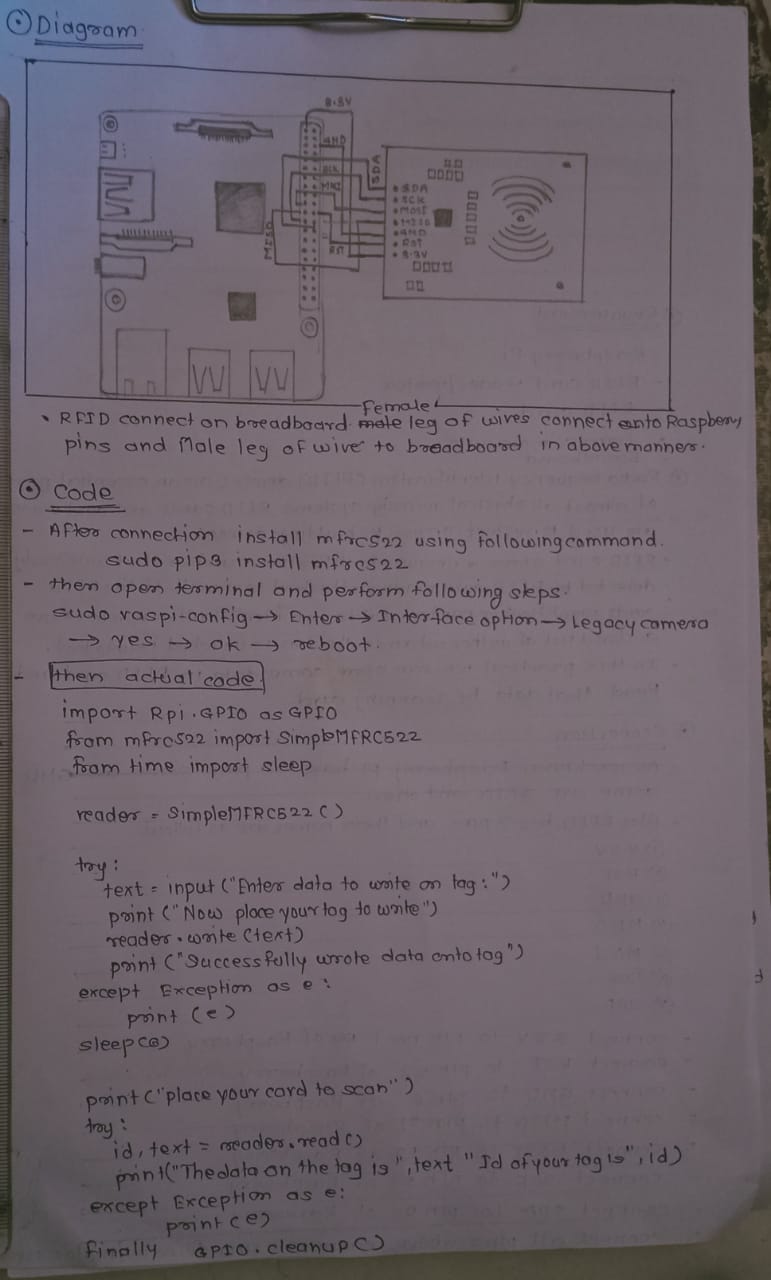 ⊙ Diagram
3.3V
GND
SCK
MOSI
MISO
RST
SDA
SDA
SCK
MOSI
MISO
GND
RST
3.3V
Female
• RFID connect on breadboard male leg of wires connect onto Raspbery
pins and Male leg of wire to breadboard in above manner.
⊙ Code
- After connection install mfrc522 using following command.
sudo pip3 install mfrc522
- then open terminal and perform following steps.
sudo raspi-config → Enter → Interface option → Legacy camera
→ yes → ok → reboot.
- then actual code
import Rpi.GPIO as GPIO
from mfrc522 import SimpleMFRC522
from time import sleep
reader = SimpleMFRC522()
try:
text = input("Enter data to write on tag:")
print("Now place your tag to write")
reader.write(text)
print("Successfully wrote data onto tag")
except Exception as e:
print(e)
sleep()
print("place your card to scan")
try:
id, text = reader.read()
print("The data on the tag is", text "Id of your tag is", id)
except Exception as e:
print(e)
finally GPIO.cleanup()